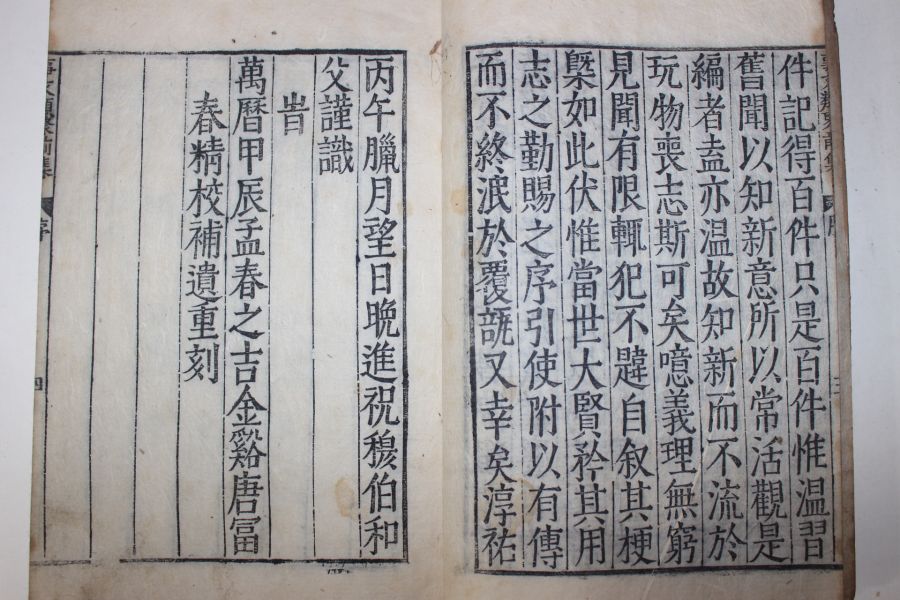 件記得百件只是百件惟温習
舊聞以知新意所以常活觀是
編者盍亦温故知新而不流於
玩物喪志斯可矣噫義理無窮
見聞有限輒犯不韙自叙其梗
槩如此伏惟當世大賢矜其用
志之勤賜之序引使附以有傳
而不終泯於覆瓿又幸矣淳祐
丙午臘月望日晩進祝穆伯和
父謹識
旹
萬曆甲辰孟春之吉金谿唐富
春精校補遺重刻
四